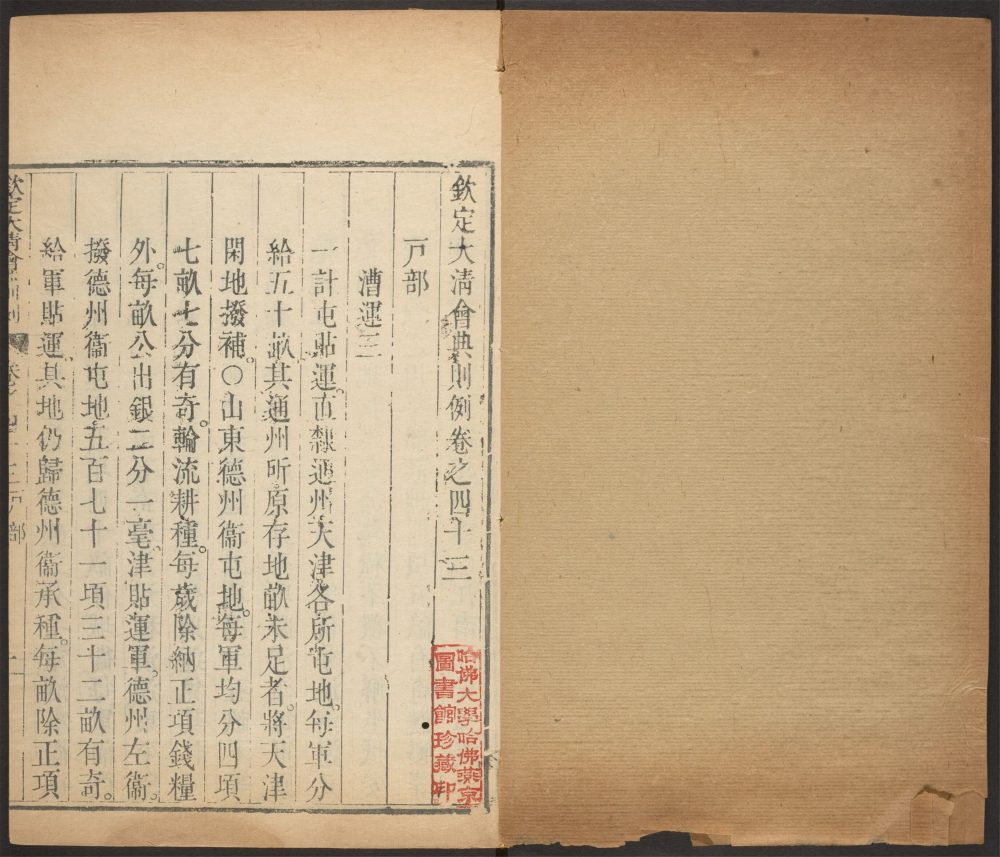 欽定大清會典則例卷之四十三
戸部
漕運三
一計屯貼運。直隷通州天津各所屯地。每軍分
給五十畝。其通州所原存地畝未足者。將天津
閑地撥補。〇山東德州衞屯地。每軍均分四頃
七畝七分有奇。輪流耕種。每歲除納正項錢糧
外。每畝公出銀二分一毫。津貼運軍。德州左衞。
撥德州衞屯地。五百七十一頃三十二畝有奇。
給軍貼運。其地仍歸德州衞承種。每畝除正項
欽定大清會
戸部
哈佛大學哈佛燕京
圖書館珍藏印